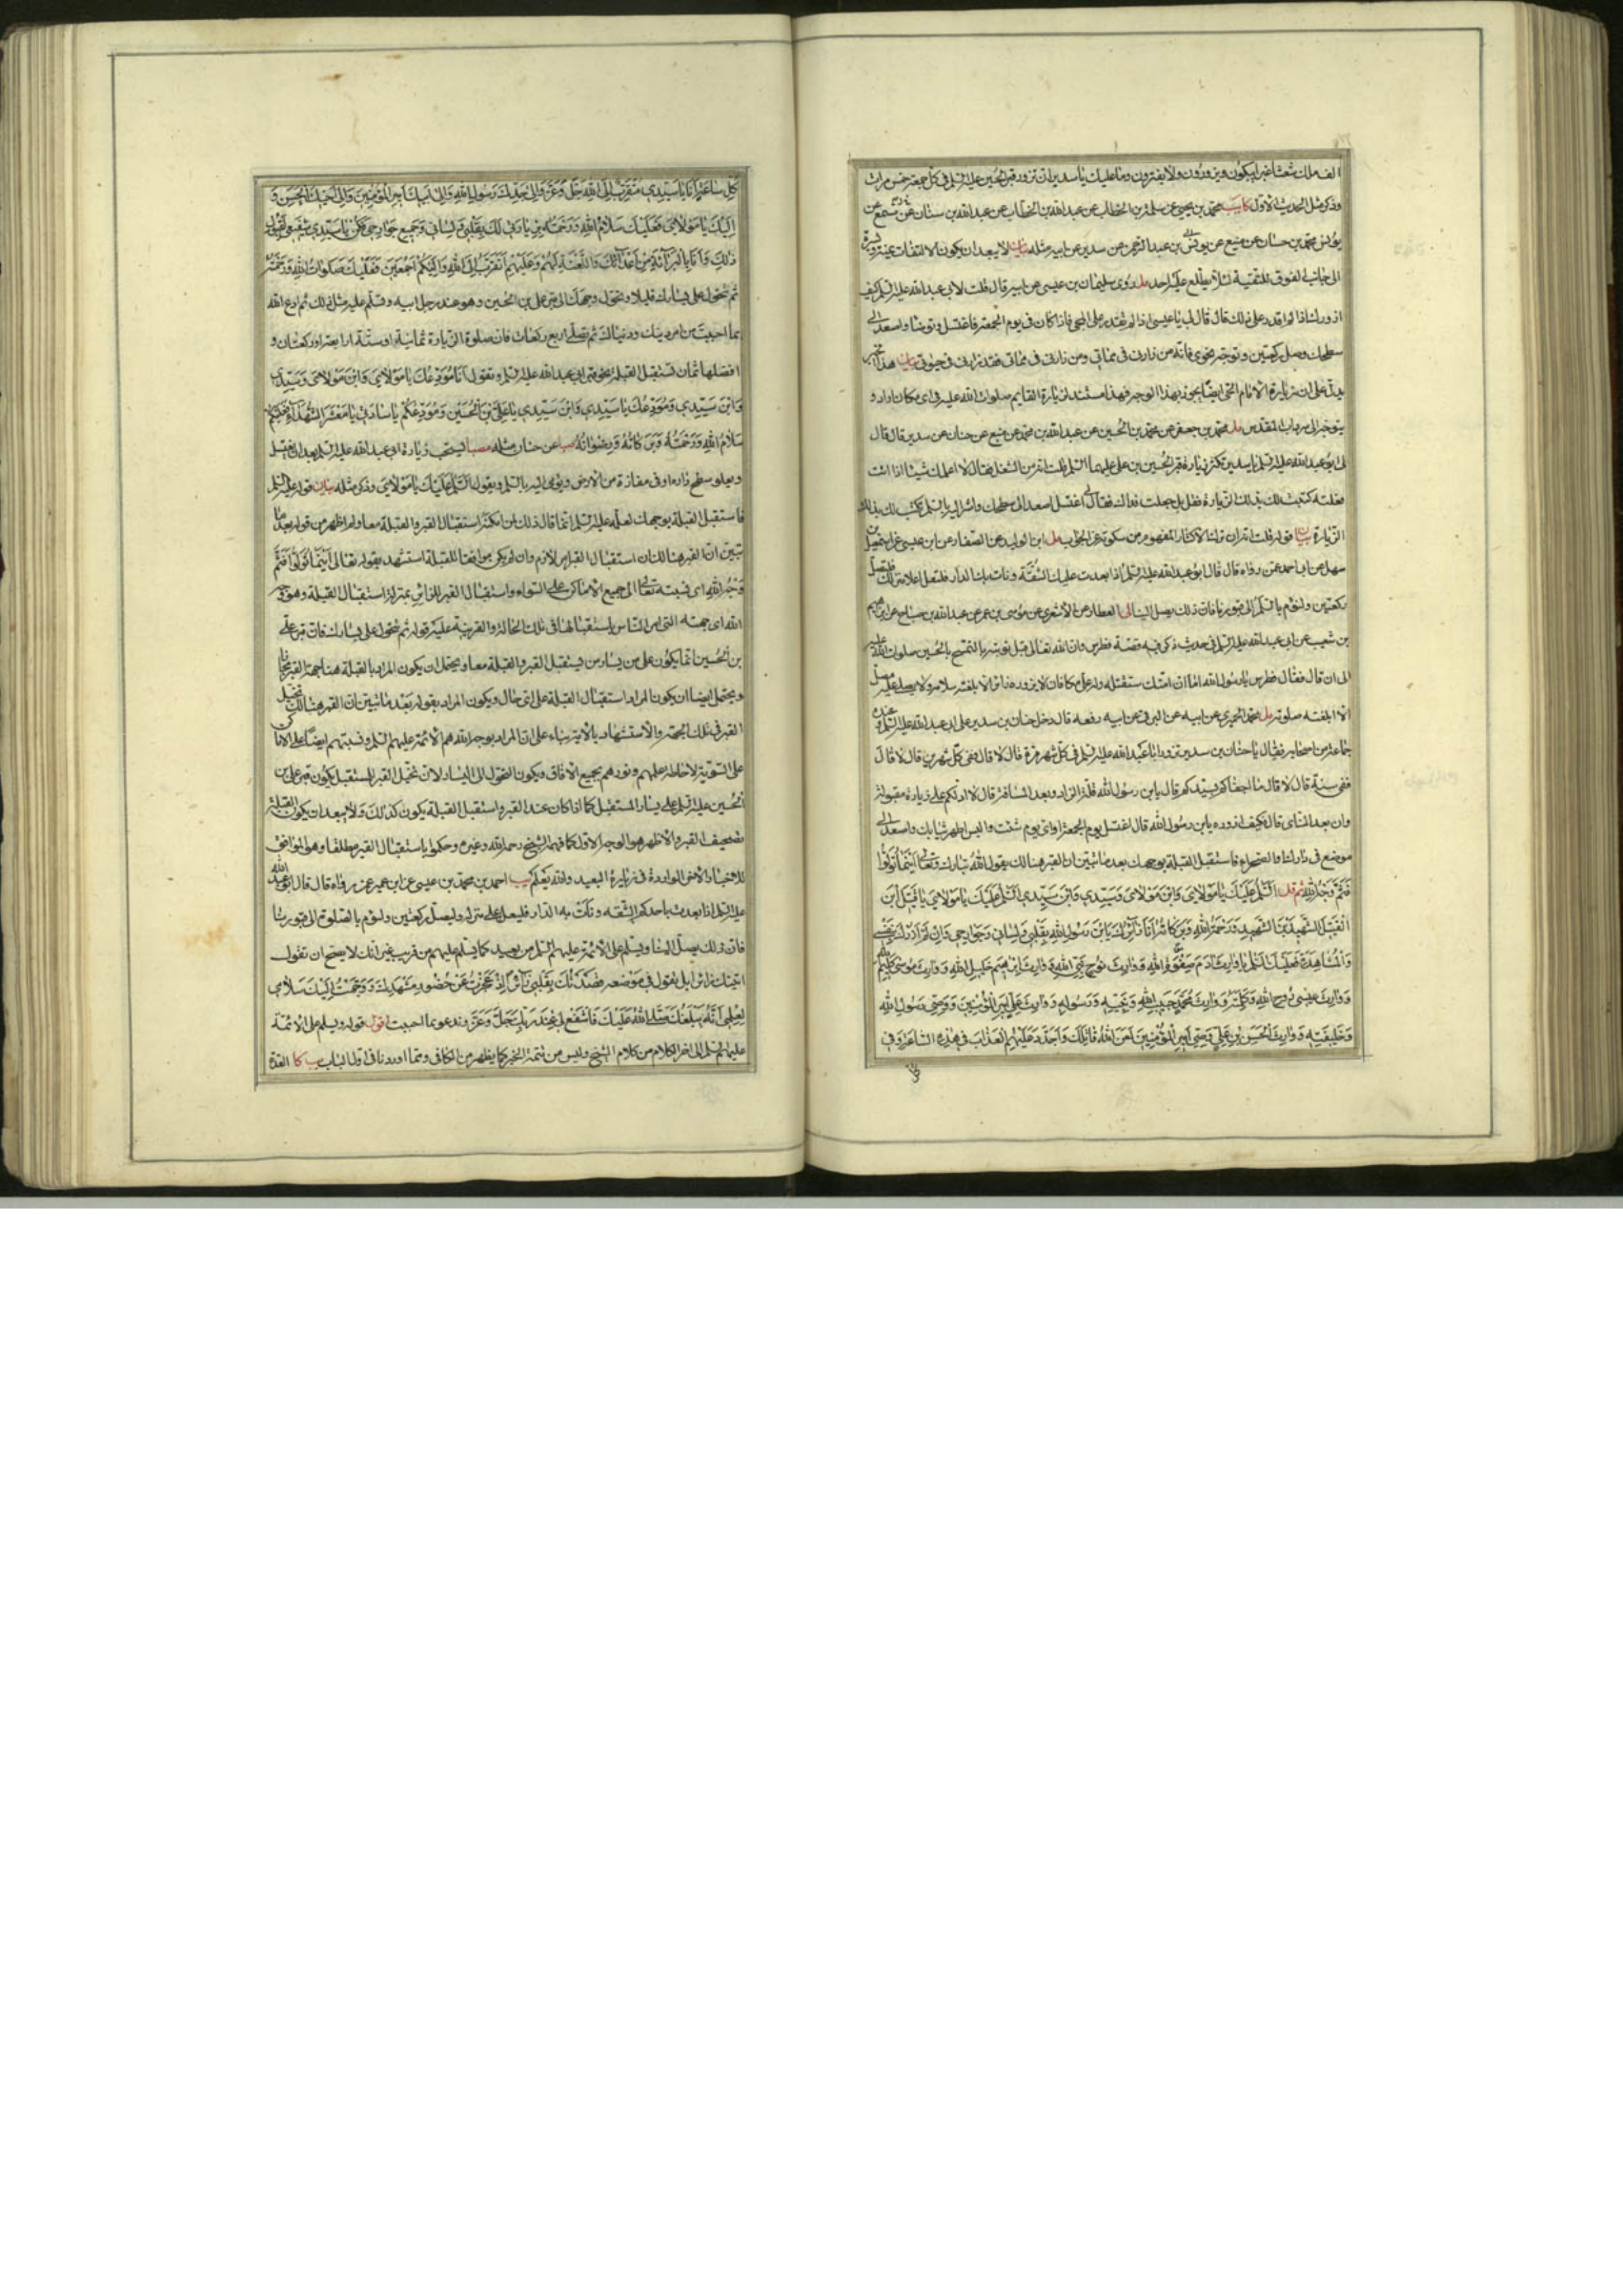 الف ملك شعثا غبرا يبكون ويزورون ولا يفترون وما عليك يا سدير ان تزور قبر الحسين عليه السلم فى كل جمعة خمس مرات
وذكر مثل الحديث الاول كا يب محمد بن يحيى عن سلمة بن الخطاب عن عبدالله بن الخطاب عن عبدالله بن سنان عن مسمع عن
يونس بن عبد الرحمن عن سدير عن ابيه مثله بيان لا يبعد ان يكون الالتفات يمنة ويسرة
الى جانب الفوق للتقية لئلا يطلع عليه احد مل روى سليمان بن عيسى عن ابيه قال قلت لابى عبد الله عليه السلم كيف
ازورك اذا لم اقدر على ذلك قال قال لى يا عيسى اذا لم تقدر على المجى فاذا كان فى يوم الجمعة فاغتسل او توضا واصعد الى
سطحك وصل ركعتين وتوجه نحوى فانه من زارنى فى حياتى فقد زارنى فى مماتى ومن زارنى فى مماتى فقد زارنى فى حيوتى بيان هذا الخبر
يدل على ان زيارة الامام الحى ايضا يجوز بهذا الوجه فهذا مستند لزيارة القايم صلوات الله عليه فى اى مكان اراد و
يتوجه الى سرداب المقدس مل محمد بن جعفر عن محمد بن الحسين عن عبدالله بن محمد عن منيع عن حنان عن سدير قال قال
لى ابو عبد الله عليه السلم يا سدير تكثر زيارة قبر الحسين بن على عليهما السلم قلت انه من الشغل فقال الا اعلمك شيئا اذا انت
فعلته كتبت لك بذلك الزيارة فقلت بلى جعلت فداك فقال لى اغتسل واصعد الى سطحك واشر اليه بالسلم يكتب لك بذلك
الزيارة بيان قوله قلت انه ان ترك الاكثار المفهوم من سكوته عن الجواب مل ابن الوليد عن الصفار عن ابن عيسى عن
سهل عن ابى احمد عمن رواه قال قال ابو عبدالله عليه السلم اذا بعدت عليك الشقة ونات بك الدار فلتعل اعلا منزلك فلتصل
ركعتين ولتؤم بالسلم الى قبورنا فان ذلك يصل الينا لى العطار عن الاشعرى عن موسى بن عمر عن عبدالله بن صباح عن ابراهيم
بن شعيب عن ابى عبدالله عليه السلم فى حديث ذكر فيه قصة فطرس وان الله تعالى قبل توبته بالتمسح بالحسين صلوات الله عليه
الى ان قال فقال فطرس يا رسول الله اما ان امتك ستقتله وله على مكافاة لا يزوره زائر الا بلغته سلامه ولا يصلى عليه مصل
الا ابلغته صلوته مل محمد الحميرى عن ابيه عن البرقى عن ابيه رفعه قال دخل حنان بن سدير على ابى عبد الله عليه السلم وعنده
جماعة من اصحابه فقال يا حنان بن سدير تزور ابا عبدالله عليه السلم فى كل شهر مرة قال لا قال ففى كل شهرين قال لا قال
ففى سنة قال لا قال ما اجفاكم بسيدكم قال يا ابن رسول الله قلة الزاد وبعد المسافة قال لا ادلكم على زيارة مقبولة
وان بعد الناى قال فكيف ازوره يا ابن رسول الله قال اغتسل يوم الجمعة او اى يوم شئت والبس اطهر ثيابك واصعد الى
موضع فى دارك او الصحراء فاستقبل القبلة بوجهك بعد ما تبين ان القبر هنالك يقول الله تبارك وتعالى اينما تولوا
فثم وجه الله ثم قل السلم عليك يا مولاى وابن مولاى وسيدى وابن سيدى السلم عليك يا مولاى يا قتيل ابن
القتيل الشهيد بن الشهيد ورحمة الله وبركاته انا زائرك يا ابن رسول الله بقلبى ولسانى وجوارحى وان لم ازرك بنفسى
والمشاهدة فعليك السلم يا وارث ادم صفوة الله ووارث نوح نبى الله ووارث ابرهيم خليل الله ووارث موسى كليم الله
ووارث عيسى روح الله وكلمته ووارث محمد حبيب الله ونبيه ورسوله ووارث على امير المؤمنين ووصى رسول الله
وخليفته ووارث الحسن بن على وصى امير المؤمنين لعن الله قاتلك وجدد عليهم العذاب فى هذه الساعة وفى
كل
كل ساعة انا يا سيدى متقرب الى الله جل وعز والى جدك رسول الله والى ابيك امير المؤمنين والى اخيك الحسن و
اليك يا مولاى فعليك سلام الله ورحمته بزيارتى لك بقلبى ولسانى وجميع جوارحى فكن يا سيدى شفيعى لقبول
ذلك وانا بالبراءة من اعدائك واللعنة لهم وعليهم اتقرب الى الله واليكم اجمعين فعليك صلوات الله ورحمته
ثم تحول على يسارك قليلا وتحول وجهك الى قبر على بن الحسين وهو عند رجل ابيه وتسلم عليه مثل ذلك ثم ادع الله
بما احببت من امر دينك ودنياك ثم تصلى اربع ركعات فان صلوة الزيارة ثمانية او ستة او اربعة او ركعتان و
افضلها ثمان ثم تستقبل القبلة نحو قبر ابى عبدالله عليه السلم وتقول انا مودعك يا مولاى وابن مولاى وسيدى
وابن سيدى ومودعك يا سيدى وابن سيدى يا على بن الحسين ومودعكم يا ساداتى يا معشر الشهداء فعليكم
سلام الله ورحمته وبركاته ورضوانه عن حنان مثله مصبا يستحب زيارة ابى عبدالله عليه السلم بعد ان يغتسل
ويعلو سطح داره او فى مفازة من الارض ويؤمى اليه بالسلم ويقول السلم عليك يا مولاى وذكر مثله بيان قوله عليه السلم
فاستقبل القبلة بوجهك لعله عليه السلم انما قال ذلك لمن امكنه استقبال القبر والقبلة معا ولم اظهر من قوله بعد ما
تبين ان القبر هنالك ان استقبال القبر امر لازم وان لم يكن موافقا للقبلة استشهد بقوله تعالى اينما تولوا فثم
وجه الله اى نسبته تعالى الى جميع الاماكن على السواء واستقبال القبر للزائر بمنزلة استقبال القبلة وهو وجه
الله اى جهته التى امر الناس باستقبالها فى تلك الحالة والقرينة عليه قوله ثم تتحول على يسارك فان قبر على
بن الحسين انما يكون على من يسار من يستقبل القبر والقبلة معا ويحتمل ان يكون المراد بالقبلة هنا جهة القبر مجازا
ويحتمل ايضا ان يكون المراد استقبال القبلة على اى حال ويكون المراد بقوله بعد ما تبين ان القبر هنالك تخيل
القبر فى تلك الجهة والاستشهاد بالاية بناء على ان المراد بوجه الله هم الائمة عليهم السلم ونسبتهم ايضا الى الاماكن
على السوية لاحاطة علمهم ونورهم بجميع الافاق ويكون التحول الى اليسار لان تخيل القبر المستقبل يكون قبر على بن
الحسين عليه السلم على يسار المستقبل كما اذا كان عند القبر واستقبل القبلة يكون كذلك ولا يبعد ان يكون القبلة
تصحيف القبر والاظهر هو الوجه الاول كما فهمه الشيخ رحمه الله وغيره وحكموا باستقبال القبر مطلقا وهو الموافق
للاخبار الاخر الواردة فى زيارة البعيد والله يعلم يب احمد بن محمد بن عيسى عن ابن ابى عمير عن من رواه قال قال ابو عبد الله
عليه السلم اذا بعدت باحدكم الشقة ونأت به الدار فليعل اعلى منزله وليصل ركعتين وليؤم بالصلوة الى قبورنا
فان ذلك يصل الينا ويسلم على الائمة عليهم السلم من بعيد كما يسلم عليهم من قريب غير انك لا يصح ان تقول
اتيتك زائرا بل تقول فى موضعه قصدتك بقلبى زائرا اذ عجزت عن حضور مشهدك ووجهت اليك سلامى
لعلمى انه يبلغك صلى الله عليك فاشفع لى عند ربك جل وعز وتدعو بما احببت اقول قوله ويسلم على الائمة
عليهم السلم الى اخر الكلام من كلام الشيخ وليس من تتمة الخبر كما يظهر من الكافى ومما اوردنا فى اول الباب يب كا العدة